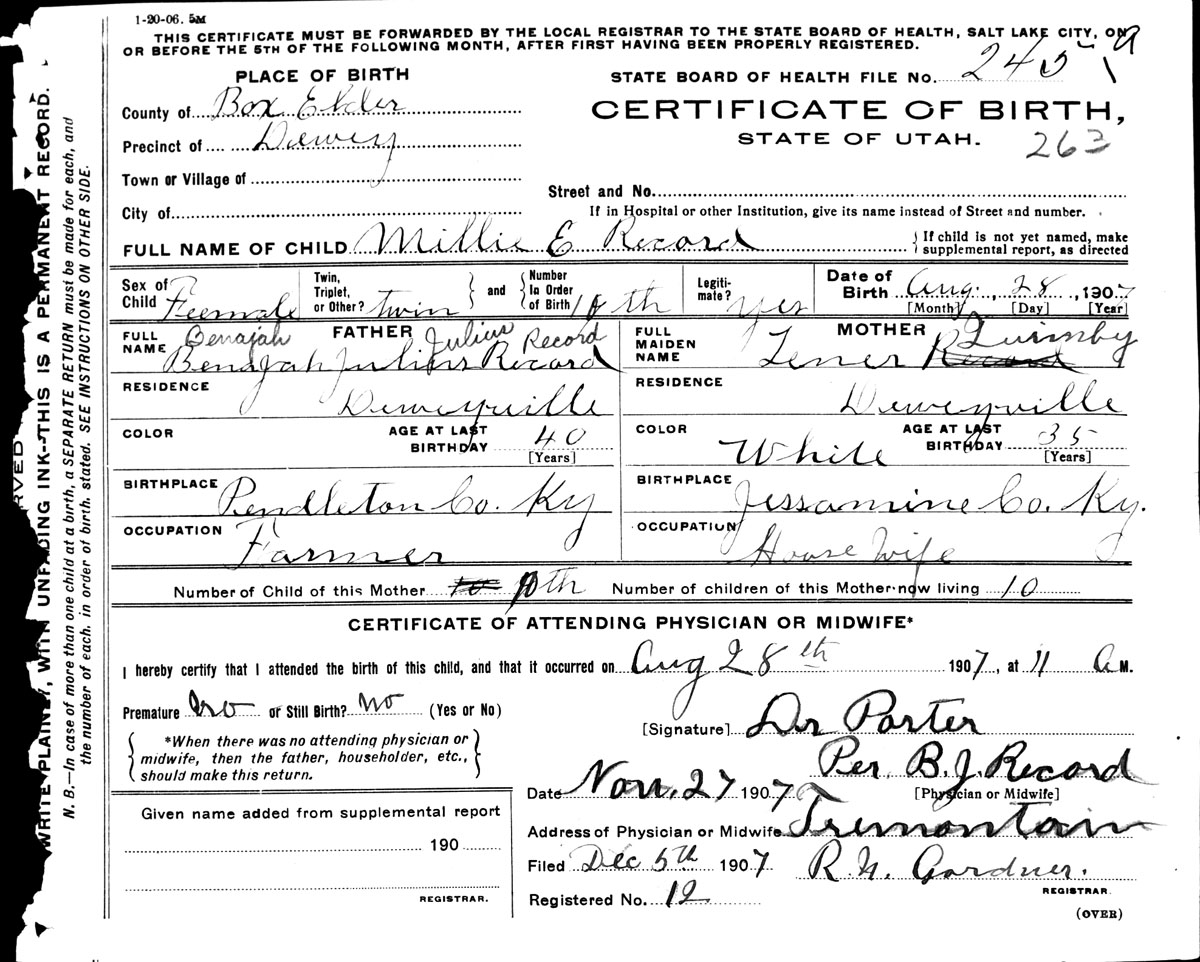 1-20-06. 5M
THIS CERTIFICATE MUST BE FORWARDED BY THE LOCAL REGISTRAR TO THE STATE BOARD OF HEALTH, SALT LAKE CITY, ON
OR BEFORE THE 5TH OF THE FOLLOWING MONTH, AFTER FIRST HAVING BEEN PROPERLY REGISTERED.
PLACE OF BIRTH
STATE BOARD OF HEALTH FILE No. 245
County of Box Elder
CERTIFICATE OF BIRTH,
Precinct of Dewey
STATE OF UTAH. 263
Town or Village of
Street and No.
City of
If in Hospital or other Institution, give its name instead of Street and number.
FULL NAME OF CHILD Millie E Record
If child is not yet named, make
supplemental report, as directed
Sex of Child Feemale
Twin, Triplet, or Other? twin
and
Number In Order of Birth 10th
Legiti-mate? yes
Date of Birth Aug. 28, 1907
[Month] [Day] [Year]
FATHER
FULL NAME Benajah Julius Record
Benajah Julius Record
MOTHER
FULL MAIDEN NAME Lener Record Quimby
RESIDENCE Deweyville
RESIDENCE Deweyville
COLOR
AGE AT LAST BIRTHDAY 40 [Years]
COLOR White
AGE AT LAST BIRTHDAY 35 [Years]
BIRTHPLACE Pendleton Co. Ky
BIRTHPLACE Jessamine Co. Ky.
OCCUPATION Farmer
OCCUPATION House Wife
Number of Child of this Mother 10 10th Number of children of this Mother now living 10
CERTIFICATE OF ATTENDING PHYSICIAN OR MIDWIFE*
I hereby certify that I attended the birth of this child, and that it occurred on Aug 28th 1907, at 11 A M.
Premature no or Still Birth? no (Yes or No)
[Signature] Dr Porter
*When there was no attending physician or
midwife, then the father, householder, etc.,
should make this return.
Per B.J. Record
[Physician or Midwife]
Date Nov. 27 1907
Given name added from supplemental report
190
REGISTRAR.
Address of Physician or Midwife Tremontain
Filed Dec 5th 1907 R.N. Gardner.
REGISTRAR
Registered No. 12
(OVER)
RVED
WRITE PLAINLY, WITH UNFADING INK—THIS IS A PERMANENT RECORD.
N. B.—In case of more than one child at a birth, a SEPARATE RETURN must be made for each, and
the number of each, in order of birth, stated. SEE INSTRUCTIONS ON OTHER SIDE.